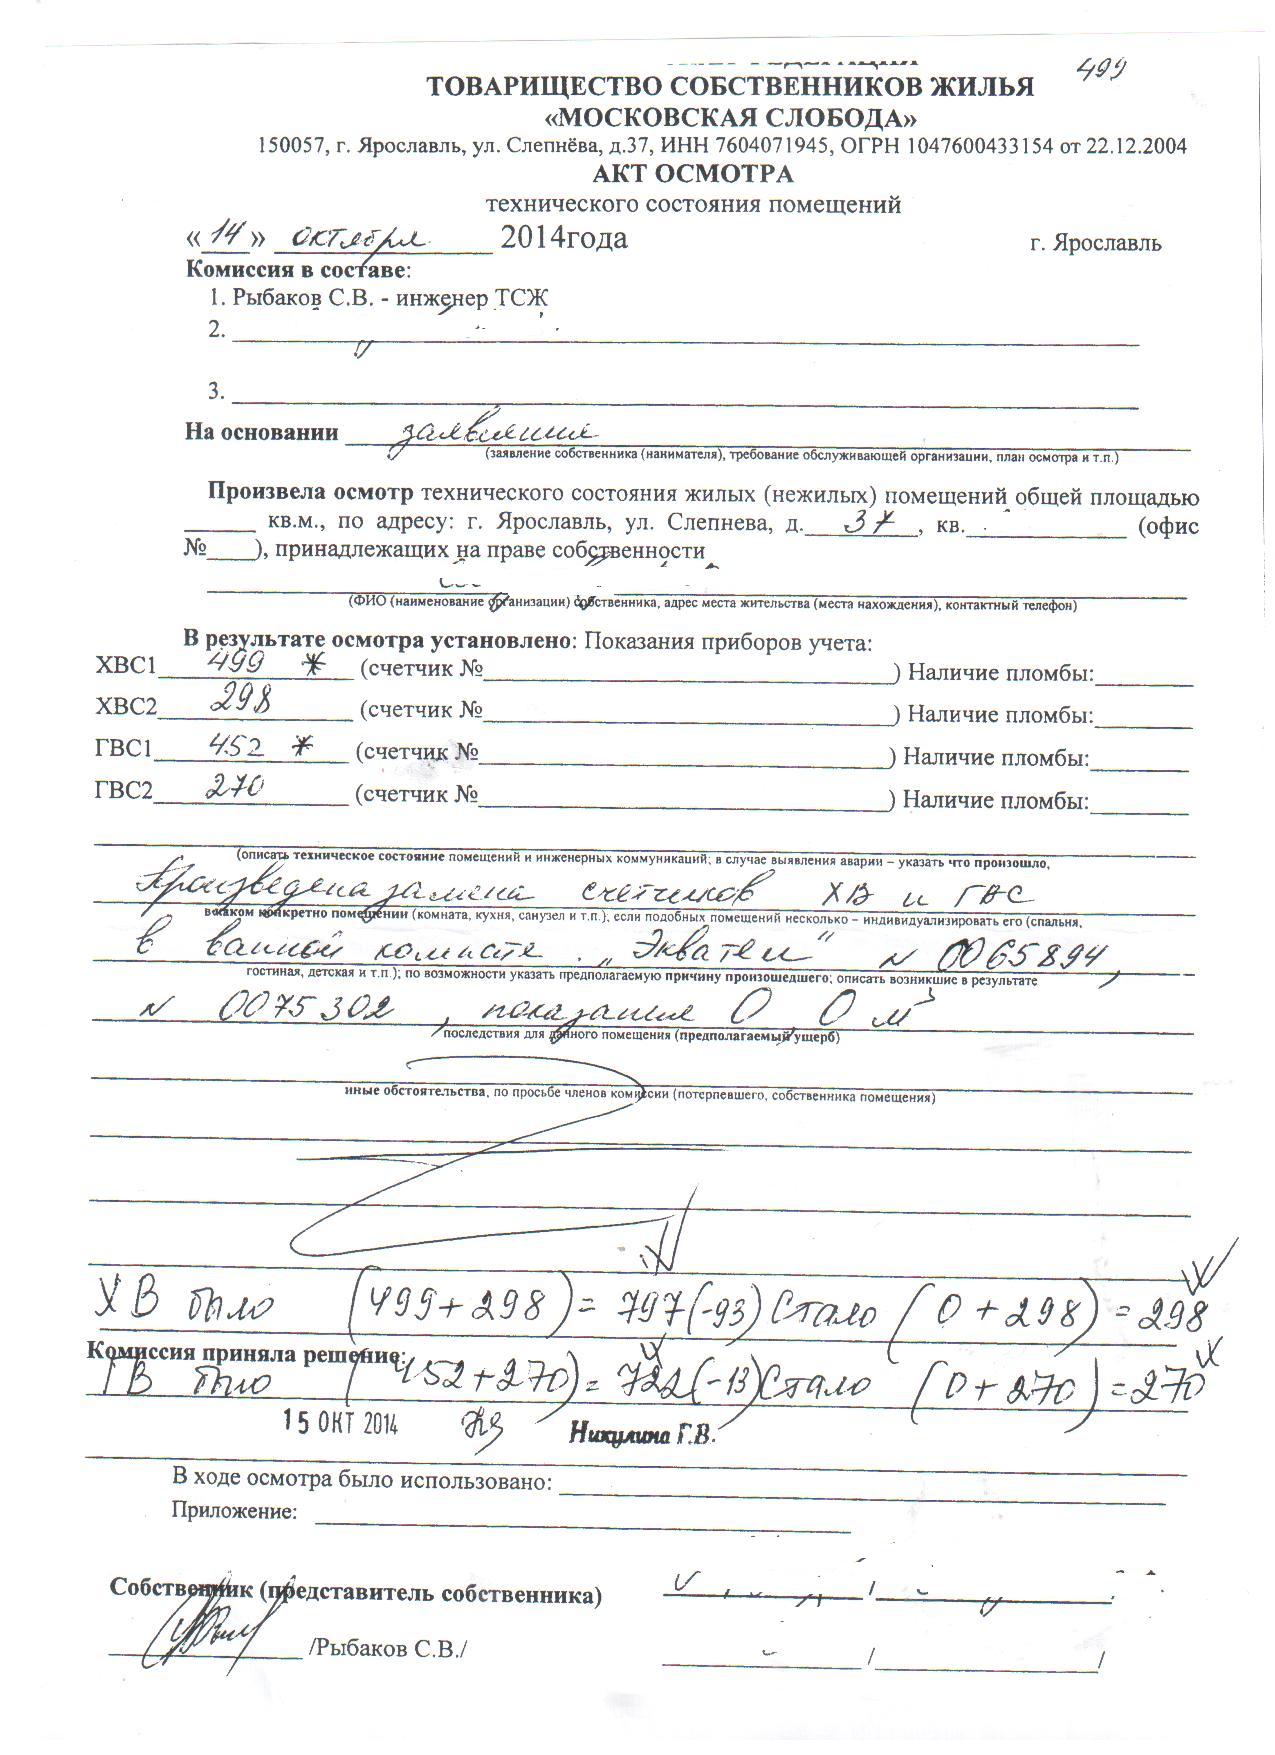 499
ТОВАРИЩЕСТВО СОБСТВЕННИКОВ ЖИЛЬЯ
«МОСКОВСКАЯ СЛОБОДА»
150057, г. Ярославль, ул. Слепнёва, д.37, ИНН 7604071945, ОГРН 1047600433154 от 22.12.2004
АКТ ОСМОТРА
технического состояния помещений
«14» октября 2014года г. Ярославль
Комиссия в составе:
1. Рыбаков С.В. - инженер ТСЖ
2.
3.
На основании заявления
(заявление собственника (нанимателя), требование обслуживающей организации, план осмотра и т.п.)
Произвела осмотр технического состояния жилых (нежилых) помещений общей площадью
кв.м., по адресу: г. Ярославль, ул. Слепнева, д. 37, кв. (офис
№____), принадлежащих на праве собственности
(ФИО (наименование организации) собственника, адрес места жительства (места нахождения), контактный телефон)
В результате осмотра установлено: Показания приборов учета:
ХВС1 499 * (счетчик №) Наличие пломбы:
ХВС2 298 (счетчик №) Наличие пломбы:
ГВС1 452 * (счетчик №) Наличие пломбы:
ГВС2 270 (счетчик №) Наличие пломбы:
(описать техническое состояние помещений и инженерных коммуникаций; в случае выявления аварии – указать что произошло,
Произведена замена счетчиков ХВ и ГВС
в каком конкретно помещении (комната, кухня, санузел и т.п.); если подобных помещений несколько – индивидуализировать его (спальня,
в ванной комнате. „Экватем“ N 0065894,
гостиная, детская и т.п.); по возможности указать предполагаемую причину произошедшего; описать возникшие в результате
N 0075302, показания 0, 0 м³
последствия для данного помещения (предполагаемый ущерб)
иные обстоятельства, по просьбе членов комиссии (потерпевшего, собственника помещения)
ХВ было (499+298)=797(-93) Стало (0+298)=298
Комиссия приняла решение:
ГВ было (452+270)=722(-13) Стало (0+270)=270
15 ОКТ 2014 Никулина Г.В.
В ходе осмотра было использовано:
Приложение:
Собственник (представитель собственника) / /
/Рыбаков С.В./ / /